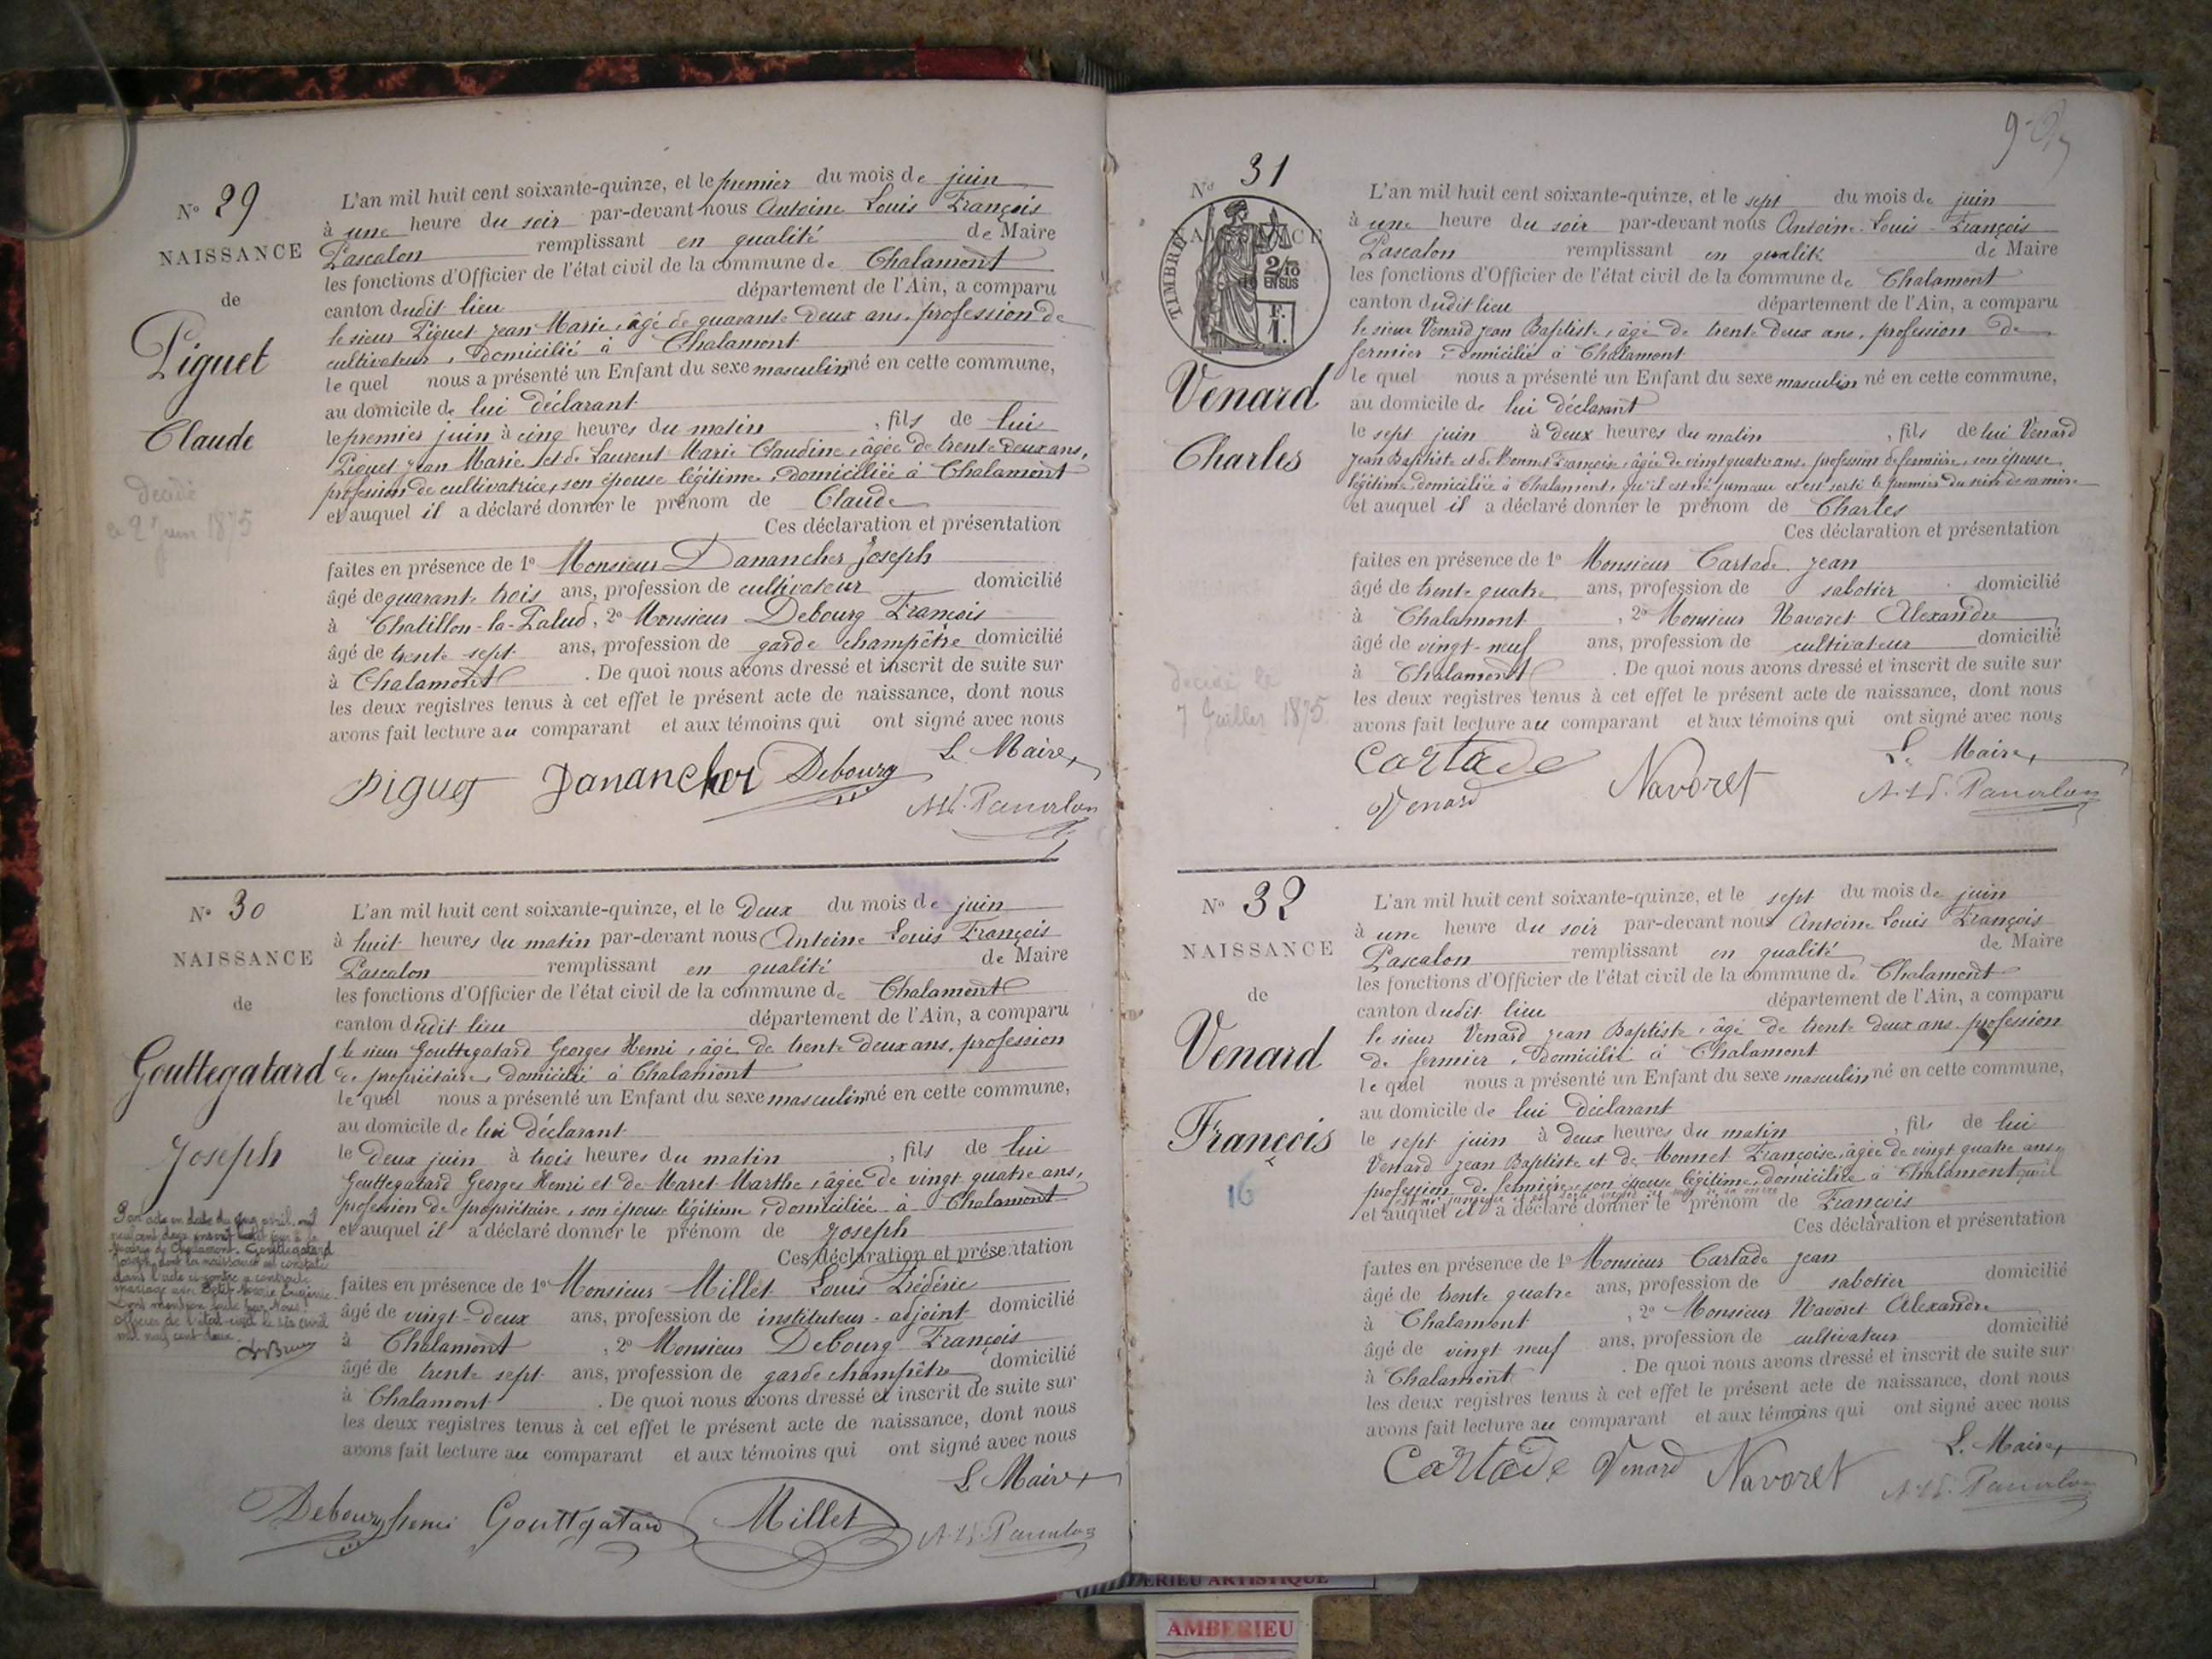 N° 29
NAISSANCE
de
Piguet
Claude
Décédé
le 2 juin 1875
L'an mil huit cent soixante-quinze, et le premier du mois de juin
à une heure du soir par-devant nous Antoine Louis François
Pascalon remplissant en qualité de Maire
les fonctions d'Officier de l'état civil de la commune de Chalamont
canton dudit lieu département de l'Ain, a comparu
le sieur Piguet Jean Marie, âgé de quarante deux ans, profession de
cultivateur, domicilié à Chalamont
le quel nous a présenté un Enfant du sexe masculin né en cette commune,
au domicile de lui déclarant
le premier juin à cinq heures du matin, fils de lui
Piguet Jean Marie et de Laurent Marie Claudine, âgée de trente deux ans,
profession de cultivatrice, son épouse légitime, domicilliée à Chalamont
et auquel il a déclaré donner le prénom de Claude
Ces déclaration et présentation
faites en présence de 1° Monsieur Danancher Joseph
âgé de quarante trois ans, profession de cultivateur domicilié
à Chatillon-la-Palud, 2° Monsieur Debourg François
âgé de trente sept ans, profession de garde champêtre domicilié
à Chalamont. De quoi nous avons dressé et inscrit de suite sur
les deux registres tenus à cet effet le présent acte de naissance, dont nous
avons fait lecture au comparant et aux témoins qui ont signé avec nous
Le Maire,
Piguet Danancher Debourg
A. L. F. Pascalon
N° 30
NAISSANCE
de
Gouttegatard
Joseph
Par acte en date du cinq avril mil
neuf cent deux inscrit ledit jour à la
Mairie de Chalamont, Gouttegatard
Joseph dont la naissance est constatée
dans l'acte ci-contre a contracté
mariage avec Petit Marie Eugénie.
Dont mention faite par Nous
Officier de l'état-civil le six avril
mil neuf cent deux.
L'an mil huit cent soixante-quinze, et le deux du mois de juin
à huit heures du matin par-devant nous Antoine Louis François
Pascalon remplissant en qualité de Maire
les fonctions d'Officier de l'état civil de la commune de Chalamont
canton dudit lieu département de l'Ain, a comparu
le sieur Gouttegatard Georges Henri, âgé de trente deux ans, profession
de propriétaire, domicilié à Chalamont
le quel nous a présenté un Enfant du sexe masculin né en cette commune,
au domicile de lui déclarant
le deux juin à trois heures du matin, fils de lui
Gouttegatard Georges Henri et de Maret Marthe, âgée de vingt quatre ans,
profession de propriétaire, son épouse légitime, domiciliée à Chalamont
et auquel il a déclaré donner le prénom de Joseph
Ces déclaration et présentation
faites en présence de 1° Monsieur Millet Louis Frédéric
âgé de vingt-deux ans, profession de instituteur-adjoint domicilié
à Chalamont, 2° Monsieur Debourg François
âgé de trente sept ans, profession de garde champêtre domicilié
à Chalamont. De quoi nous avons dressé et inscrit de suite sur
les deux registres tenus à cet effet le présent acte de naissance, dont nous
avons fait lecture au comparant et aux témoins qui ont signé avec nous
Le Maire,
Debourg Henri Gouttgatard Millet A. L. F. Pascalon
9
N° 31
NAISSANCE
TIMBRE
2/10
EN SUS
1 F.
Venard
Charles
Décédé le
7 Juillet 1875
L'an mil huit cent soixante-quinze, et le sept du mois de juin
à une heure du soir par-devant nous Antoine-Louis-François
Pascalon remplissant en qualité de Maire
les fonctions d'Officier de l'état civil de la commune de Chalamont
canton dudit lieu département de l'Ain, a comparu
le sieur Venard Jean Baptiste, âgé de trente deux ans, profession de
fermier, domicilié à Chalamont
le quel nous a présenté un Enfant du sexe masculin né en cette commune,
au domicile de lui déclarant
le sept juin à deux heures du matin, fils de lui Venard
Jean Baptiste et de Monnet Françoise, âgée de vingt quatre ans, profession de fermière, son épouse
légitime, domiciliée à Chalamont, qu'il est né jumeau et est sorti le premier du sein de sa mère
et auquel il a déclaré donner le prénom de Charles
Ces déclaration et présentation
faites en présence de 1° Monsieur Cartade Jean
âgé de trente quatre ans, profession de sabotier domicilié
à Chalamont, 2° Monsieur Navoret Alexandre
âgé de vingt-neuf ans, profession de cultivateur domicilié
à Chalamont. De quoi nous avons dressé et inscrit de suite sur
les deux registres tenus à cet effet le présent acte de naissance, dont nous
avons fait lecture au comparant et aux témoins qui ont signé avec nous
Le Maire,
Cartade Navoret A. L. F. Pascalon
Venard
N° 32
NAISSANCE
de
Venard
François
16
L'an mil huit cent soixante-quinze, et le sept du mois de juin
à une heure du soir par-devant nous Antoine Louis François
Pascalon remplissant en qualité de Maire
les fonctions d'Officier de l'état civil de la commune de Chalamont
canton dudit lieu département de l'Ain, a comparu
le sieur Venard Jean Baptiste, âgé de trente deux ans, profession
de fermier, domicilié à Chalamont
le quel nous a présenté un Enfant du sexe masculin né en cette commune,
au domicile de lui déclarant
le sept juin à deux heures du matin, fils de lui
Venard Jean Baptiste et de Monnet Françoise, âgée de vingt quatre ans,
profession de fermière, son épouse légitime, domiciliée à Chalamont, qu'il
est né jumeau et est sorti du sein de sa mère
et auquel il a déclaré donner le prénom de François
Ces déclaration et présentation
faites en présence de 1° Monsieur Cartade Jean
âgé de trente quatre ans, profession de sabotier domicilié
à Chalamont, 2° Monsieur Navoret Alexandre
âgé de vingt neuf ans, profession de cultivateur domicilié
à Chalamont. De quoi nous avons dressé et inscrit de suite sur
les deux registres tenus à cet effet le présent acte de naissance, dont nous
avons fait lecture au comparant et aux témoins qui ont signé avec nous
Le Maire,
Cartade Venard Navoret A. L. F. Pascalon
ERIEU ARTISTIQUE
AMBERIEU